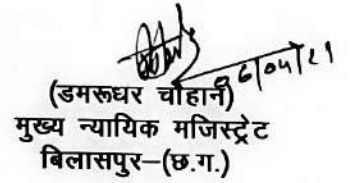 06/04/21
(डमरूधर चौहान)
मुख्य न्यायिक मजिस्ट्रेट
बिलासपुर–(छ.ग.)